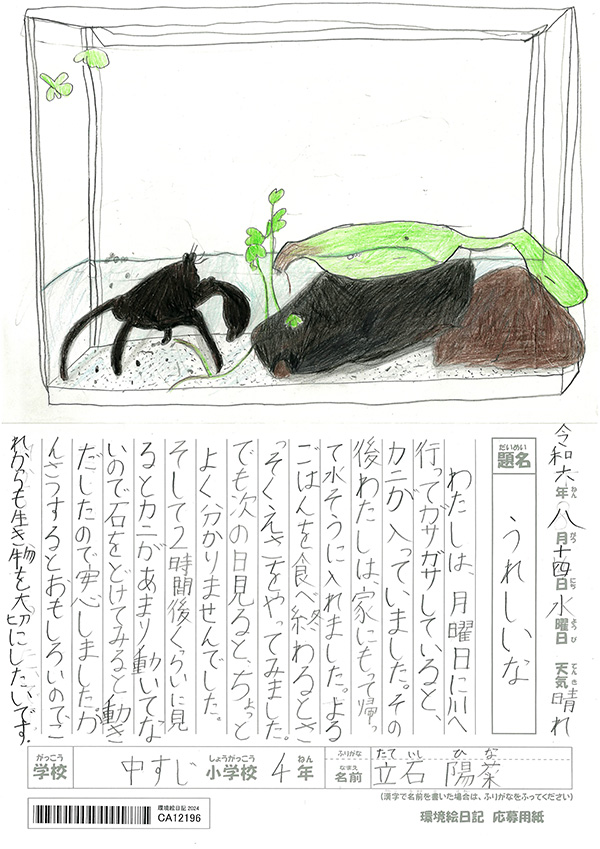 令和六年八月十四日水曜日 天気晴れ
ねん
がつ
にち
ようび
てんき
だいめい
題名
うれしいな
わたしは、月曜日に川へ
行ってガサガサしていると、
カニが入っていました。その
後わたしは、家にもって帰っ
て水そうに入れました。よる
ごはんを食べ終わるとさ
っそくえさをやってみました。
でも次の日見ると、ちょっと
よく分かりませんでした。
そして2時間後くらいに見
るとカニがあまり動いてな
いので石をどけてみると動き
だしたので安心しましたが
んさつするとおもしろいのでこ
れからも生き物を大切にしたいです。
がっこう
しょうがっこう
ねん
ふりがな
たていし ひな
学校 中すじ 小学校 4年
なまえ
名前 立石 陽菜
(漢字で名前を書いた場合は、ふりがなをふってください)
環境絵日記 2024
CA12196
環境絵日記 応募用紙